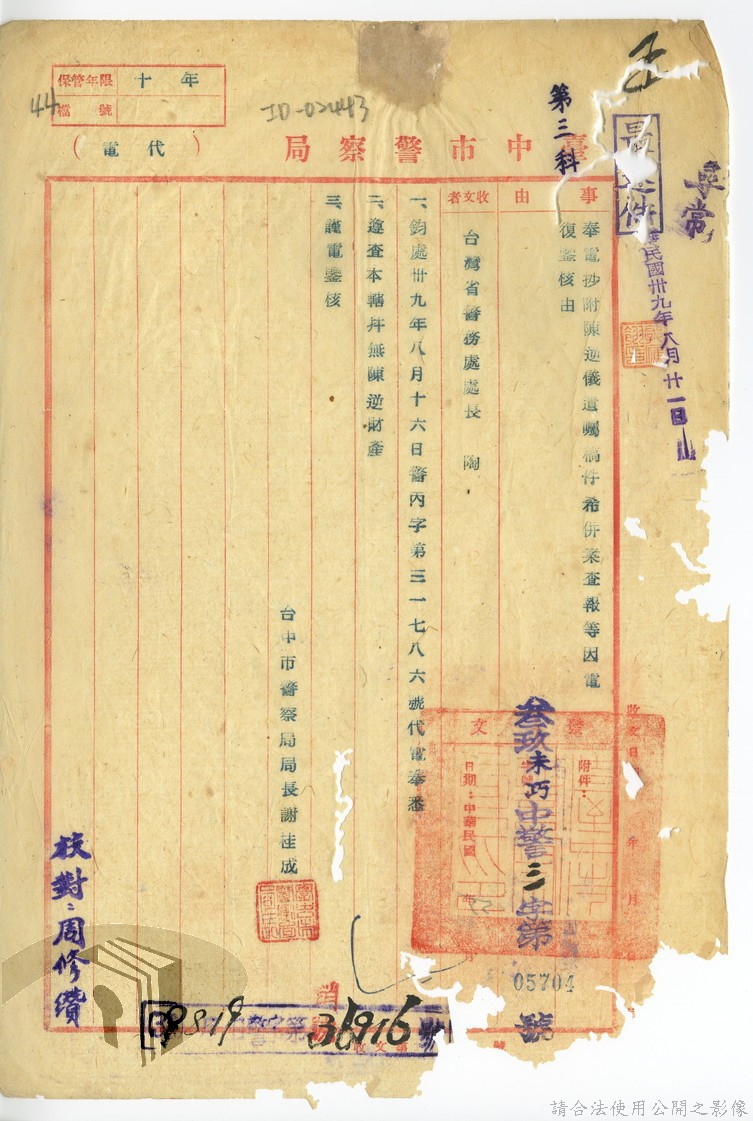 保管年限 十年
檔號
44
ID-02443
臺中市警察局
(代電)
第三科
最速件
民國卅九年八月廿一日
事由
奉電抄附陳逆儀遺囑稿件希併案查報等因電
復鑒核由
收文者
台灣省警務處處長 陶
一、鈞處卅九年八月十六日警內字第三一七八六號代電奉悉
二、遵查本轄并無陳逆財產
三、謹電鑒核
台中市警察局局長謝桂成
發文
附件：
日期：中華民國 年 月
叁玖未巧中警三字第
05704
號
收文日 年 月
校對：周修纘
39819
36916
請合法使用公開之影像